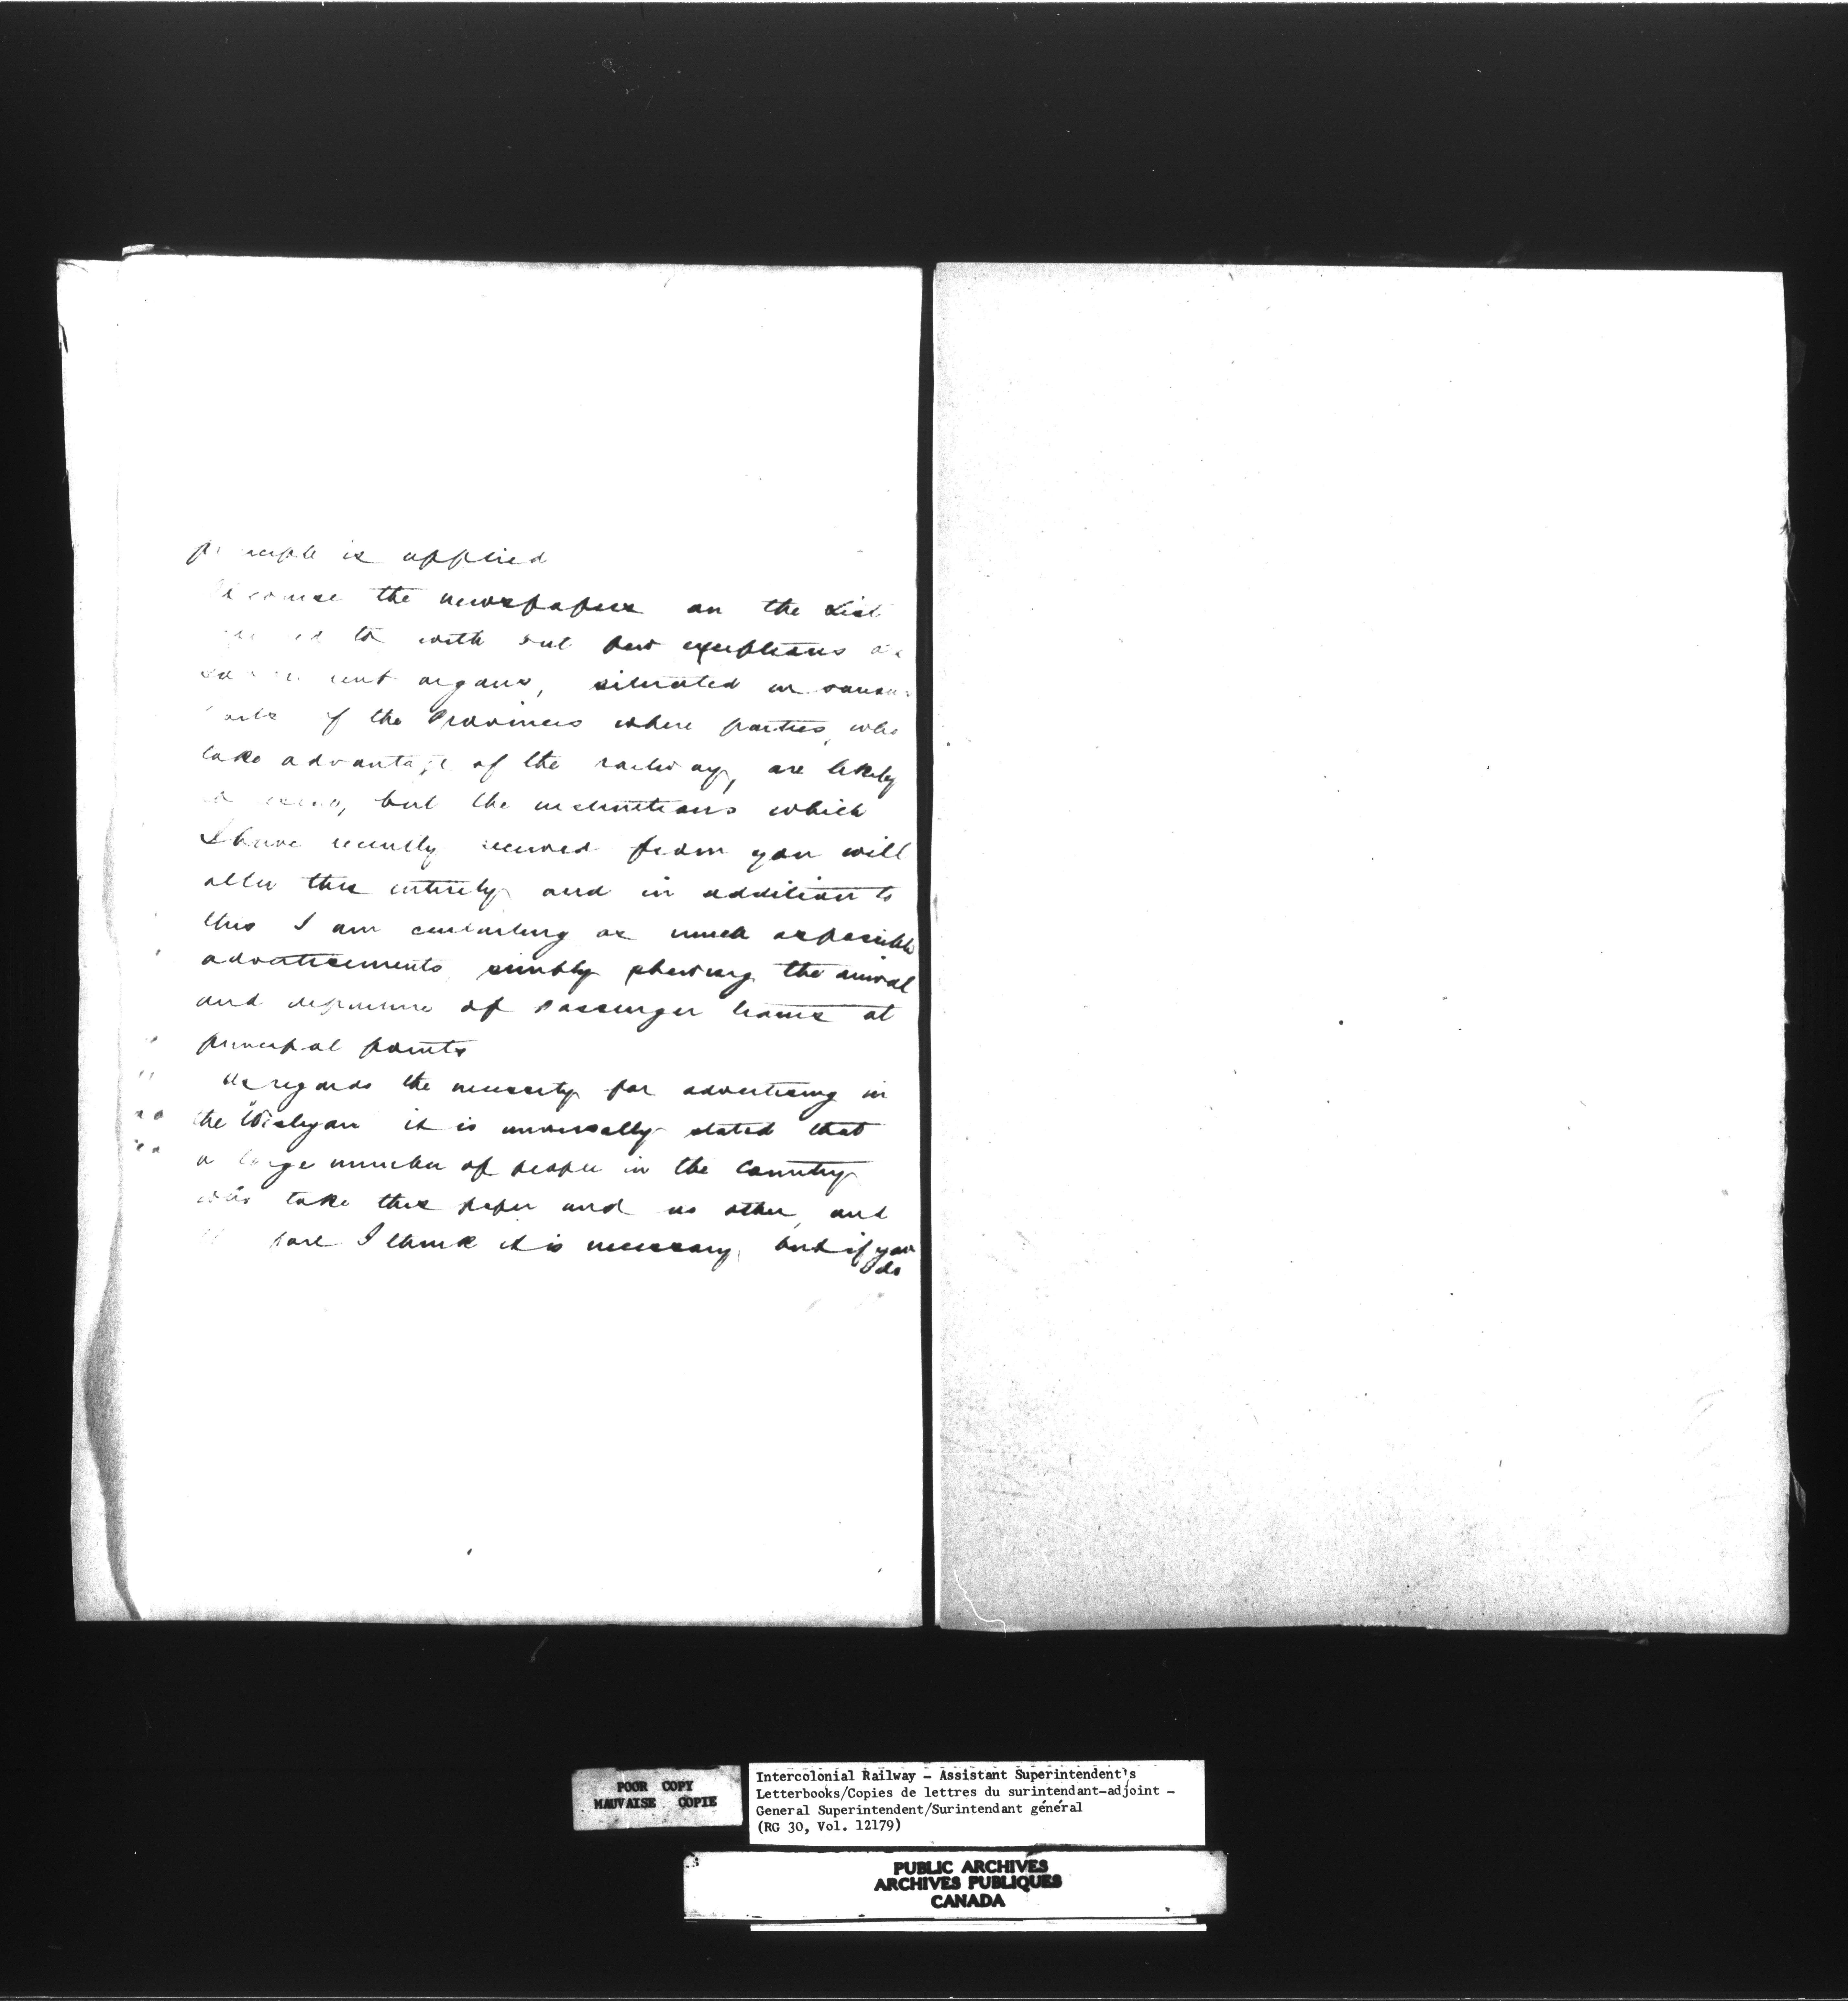 principle is applied
Of course the newspapers on the List
to with but few exceptions are
Government organs, situated in various
parts of the Provinces where parties, who
take advantage of the railway, are likely
but the instructions which
I have recently received from you will
alter this entirely and in addition to
this I am curtailing as much as possible
advertisements simply shewing the arrival
and departure of Passenger trains at
principal points
As regards the necessity for advertising in
the "Wesleyan it is universally stated that
a large number of people in the Country
who take this paper and no other, and
I think it is necessary, but if you
do
POOR COPY
MAUVAISE COPIE
Intercolonial Railway - Assistant Superintendent's
Letterbooks/Copies de lettres du surintendant-adjoint -
General Superintendent/Surintendant général
(RG 30, Vol. 12179)
PUBLIC ARCHIVES
ARCHIVES PUBLIQUES
CANADA